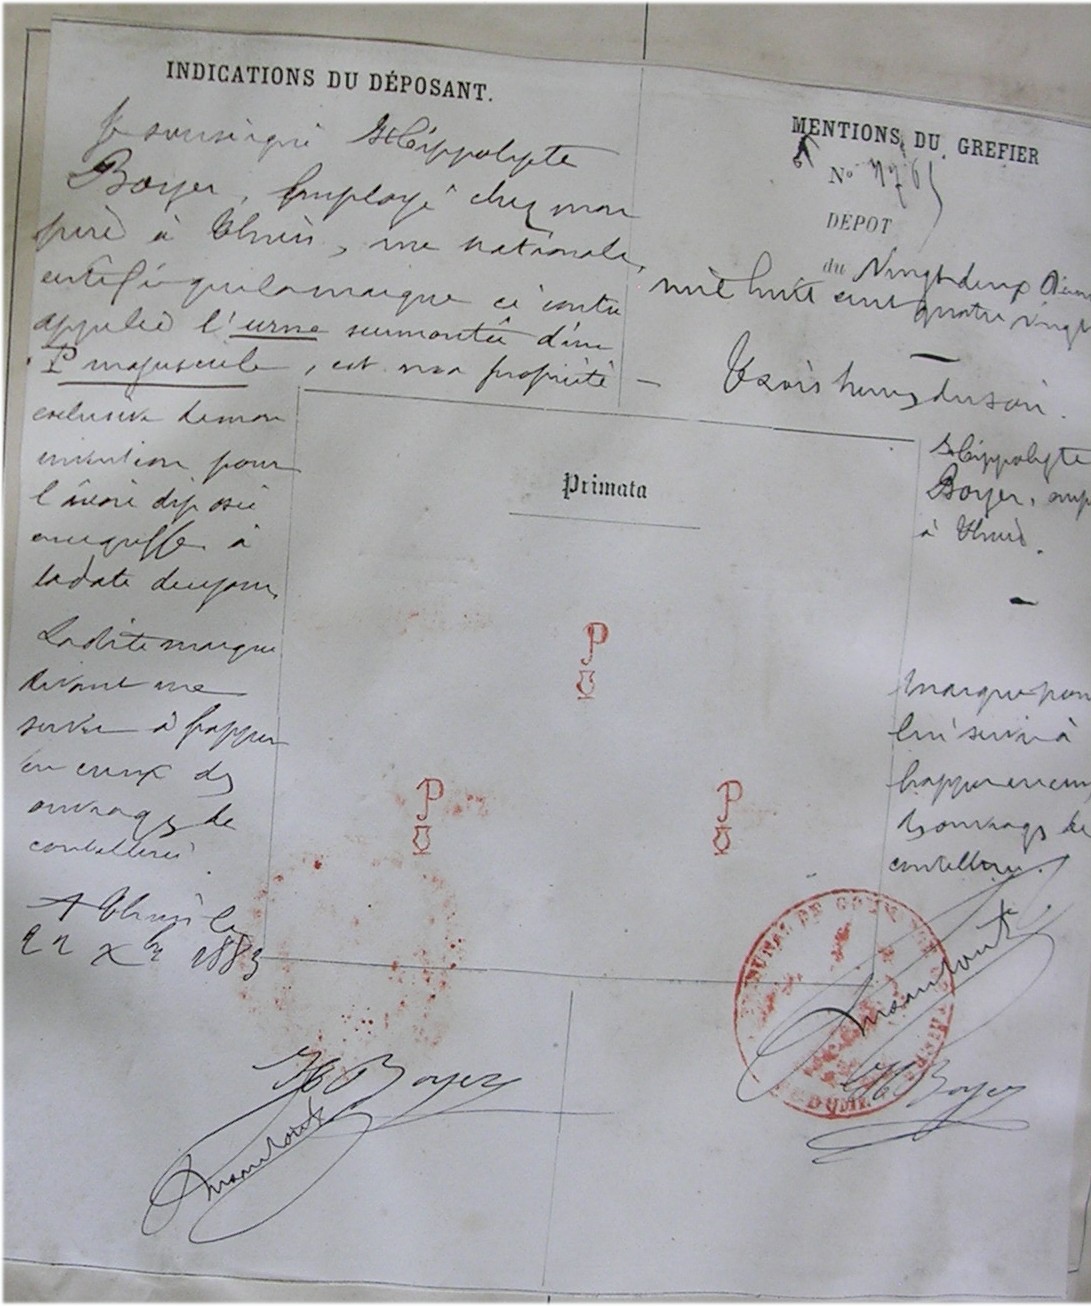 INDICATIONS DU DÉPOSANT.
Je soussigné Hippolyte
Boyer, employé chez mon
père à Thiers, rue nationale,
certifie que la marque ci contre
appelée l'urne surmontée d'un
P majuscule, est ma propriété
exclusive de mon
invention pour
l'avoir déposée
au greffe à
la date de ce jour,
La dite marque
devant me
servir à frapper
en creux des
ouvrages de
coutellerie
A Thiers le
22 Xbre 1883
H Boyer
MENTIONS DU GREFIER
No 4765
DEPOT
du Vingt deux
mil huit cent quatre vingt
Trois heures du soir.
Hippolyte
Boyer, emp
à Thiers.
Marque pour
lui servir à
frapper en creux
des ouvrages de
coutellerie.
H Boyer
Primata
P
P
P
TRIBUNAL DE COMMERCE
THIERS
PUY DE DOME